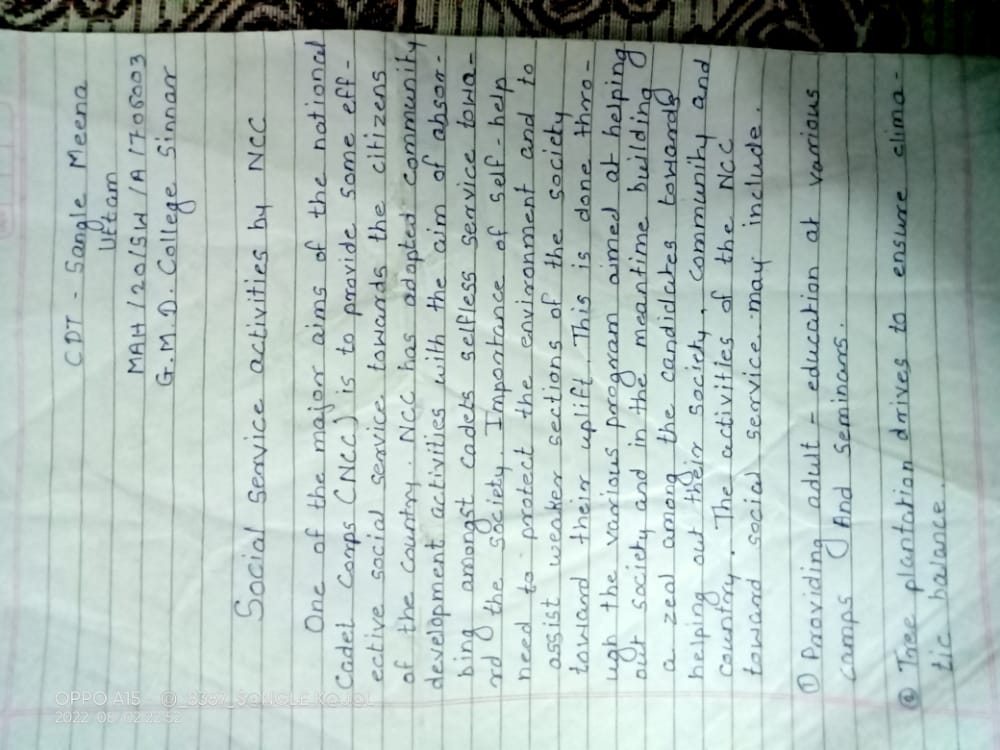 CDT - Sangle Meena
Uttam
MAH/20/SW/A/1706003
G.M.D. College Sinnar
Social service activities by NCC
One of the major aims of the national
Cadel corps (NCC) is to provide some eff-
ective social service towards the citizens
of the country. NCC has adopted community
development activities with the aim of absor-
bing amongst cadets selfless service towa-
rd the society. Importance of self-help
need to protect the environment and to
assist weaker sections of the society
toward their uplift. This is done thro-
ugh the various program aimed at helping
out society and in the meantime building
a zeal among the candidates towards
helping out their society, community and
country. The activities of the NCC
toward social service may include.
① Providing adult - education at various
camps And seminars.
② Tree plantation drives to ensure clima-
tic balance.
OPPO A15 · @_3367_SANGLE_KAJOL
2022/08/02 22:52